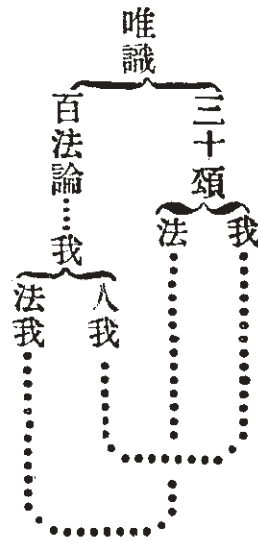 唯識
三十頌
我
法
百法論……我
人我
法我